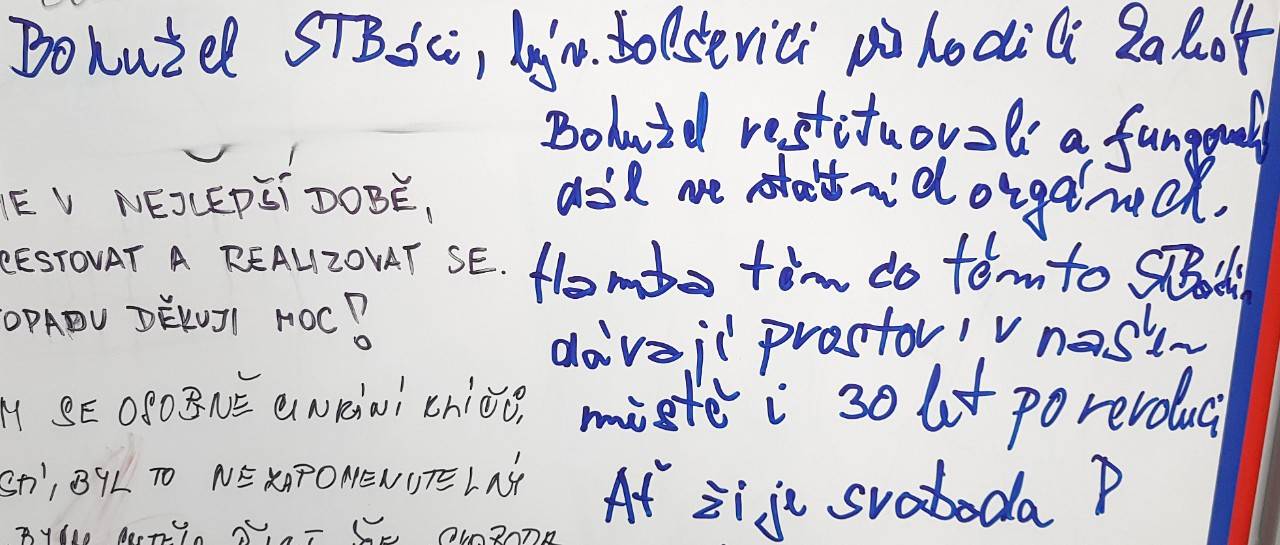 Bohužel STBáci, býv. bolševici
Bohužel restituovali a fungovali
dál ve státních orgánech.
IE V NEJLEPŠÍ DOBĚ,
CESTOVAT A REALIZOVAT SE.
OPADU DĚKUJI MOC!
Hamba těm co těmto STBákům
dávají prostor i v našem
městě i 30 let po revoluci
M SE OSOBNĚ CINKÁNÍ KLÍČŮ,
STÍ, BYL TO NEZAPOMENUTELNÝ
Ať žije svoboda P
SVOBODA